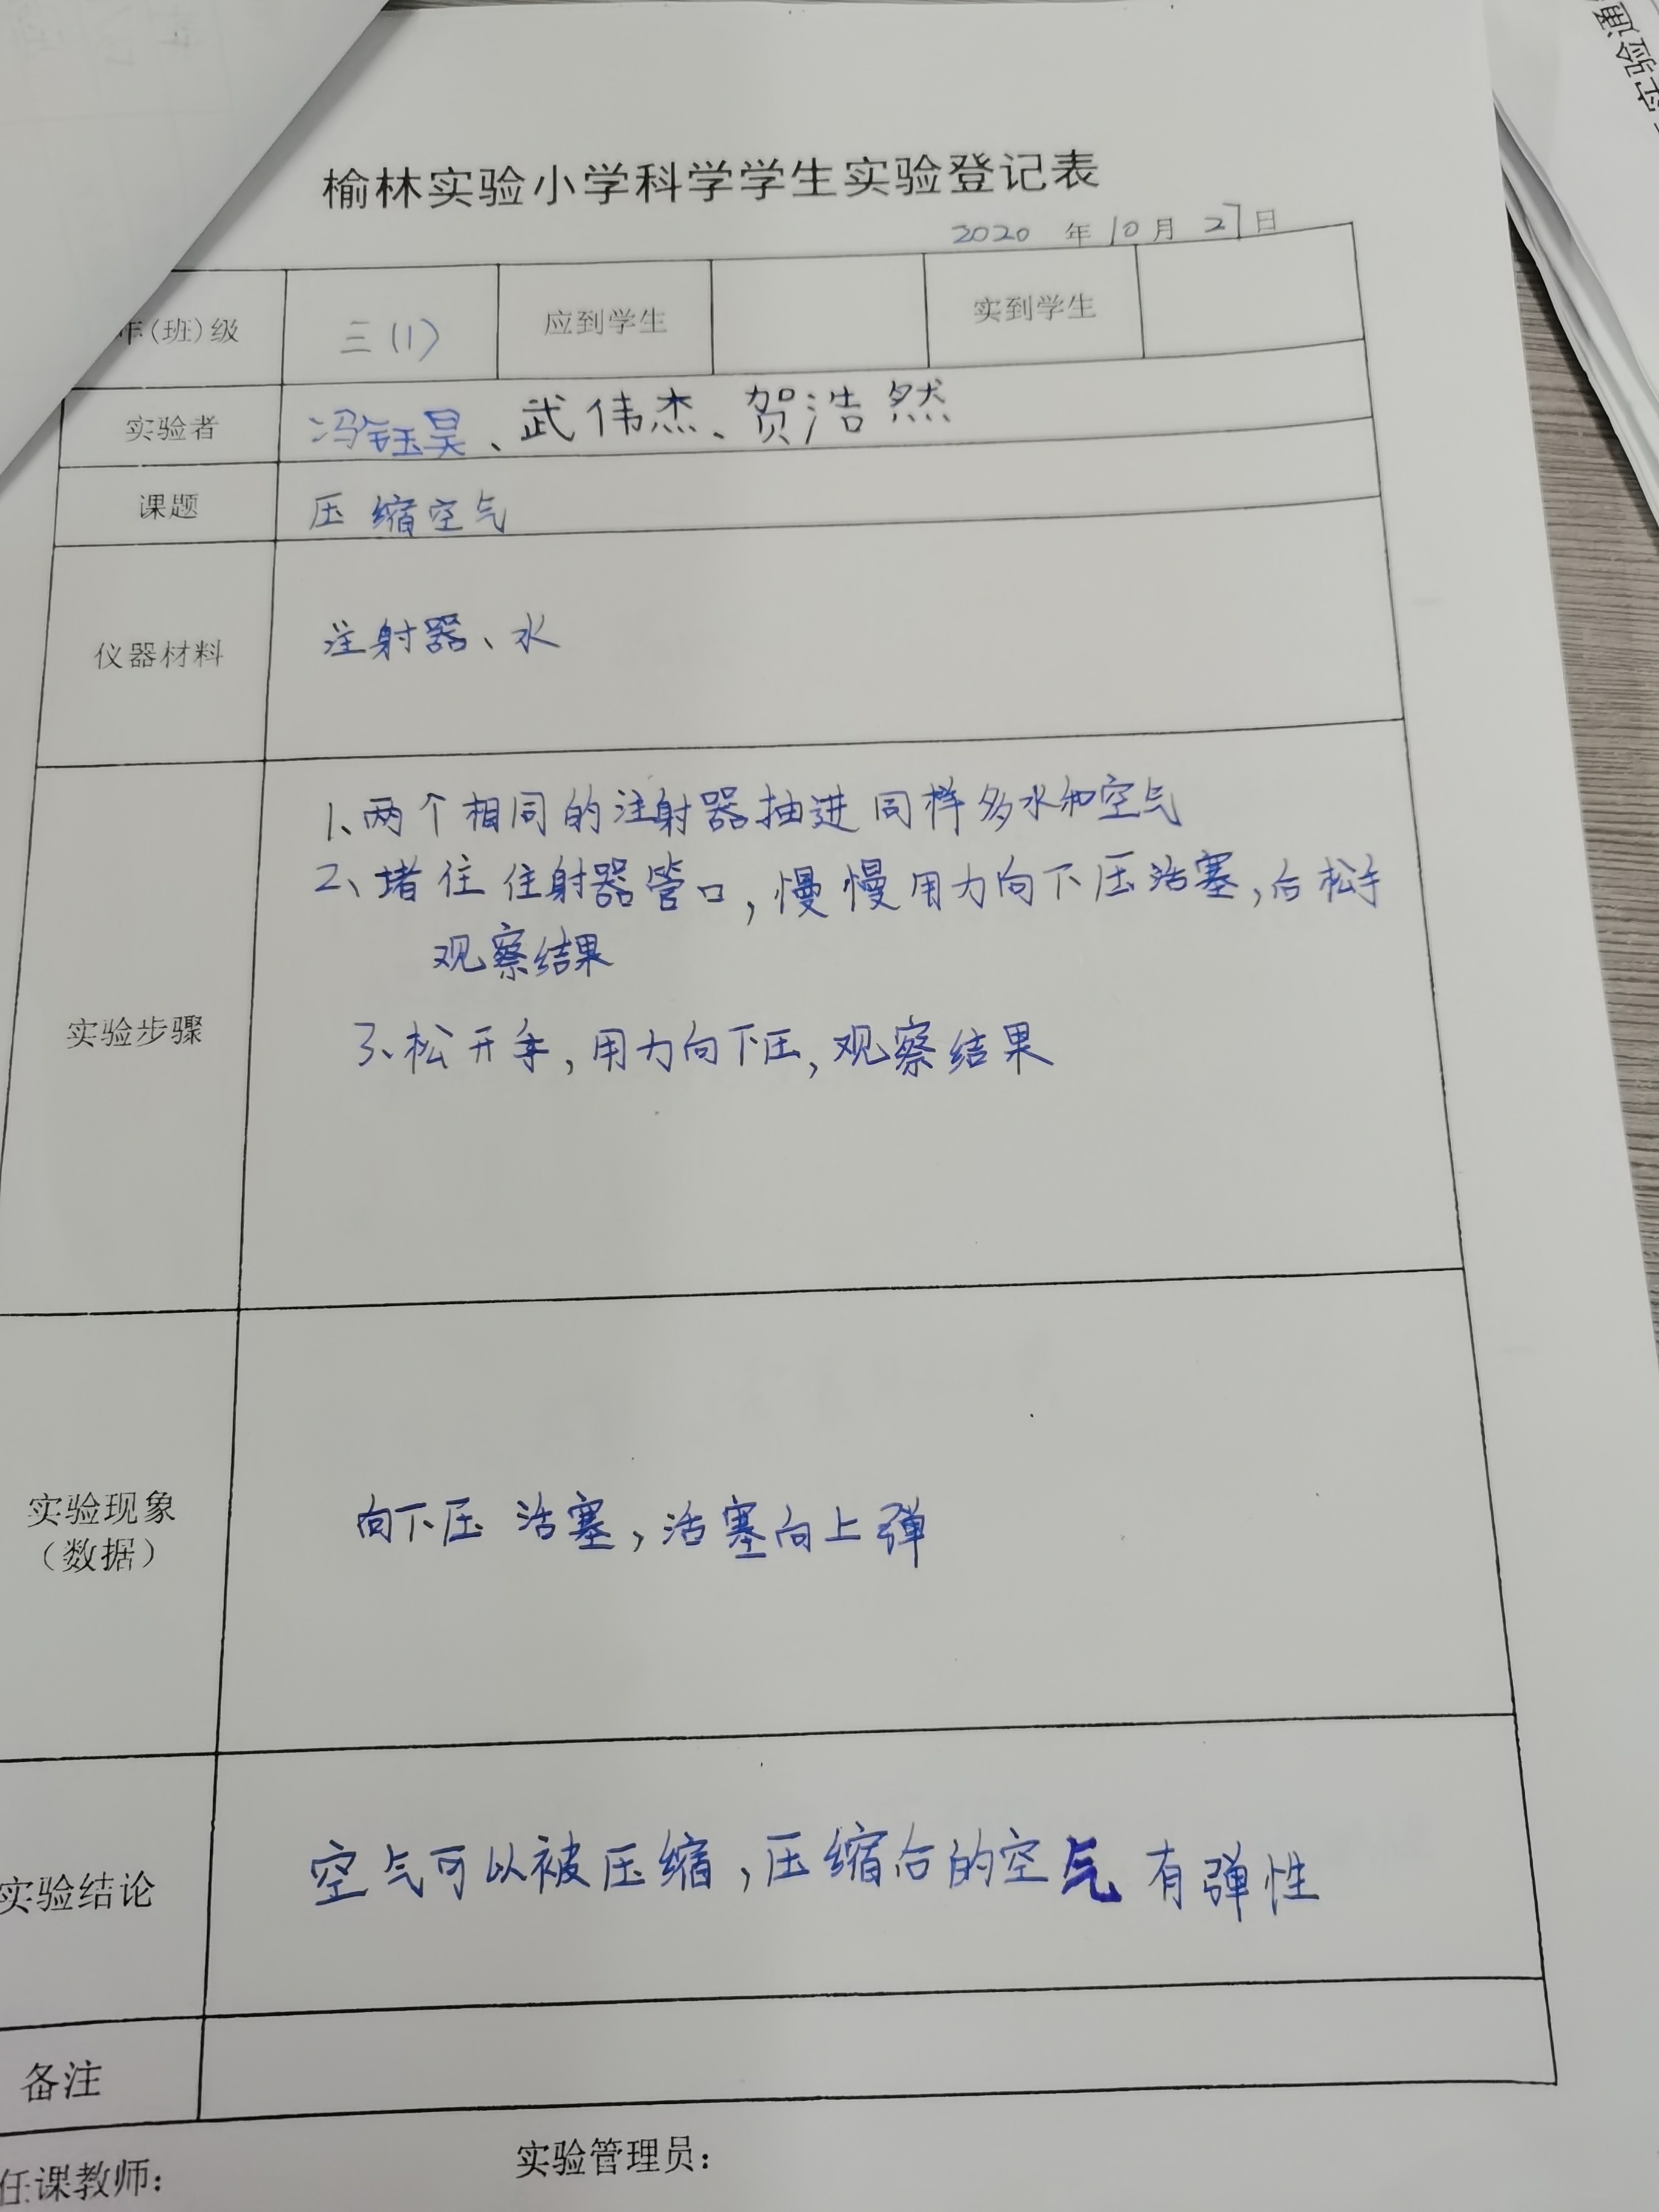 实验通
榆林实验小学科学学生实验登记表
2020 年 10 月 27 日
年(班)级 三(1) 应到学生 实到学生
实验者 冯钰昊、武伟杰、贺浩然
课题 压缩空气
仪器材料 注射器、水
1、两个相同的注射器抽进同样多水和空气
2、堵住住射器管口,慢慢用力向下压活塞,后松手
观察结果
实验步骤
3、松开手,用力向下压,观察结果
实验现象
(数据)
向下压活塞,活塞向上弹
实验结论 空气可以被压缩,压缩后的空气有弹性
备注
任课教师: 实验管理员: